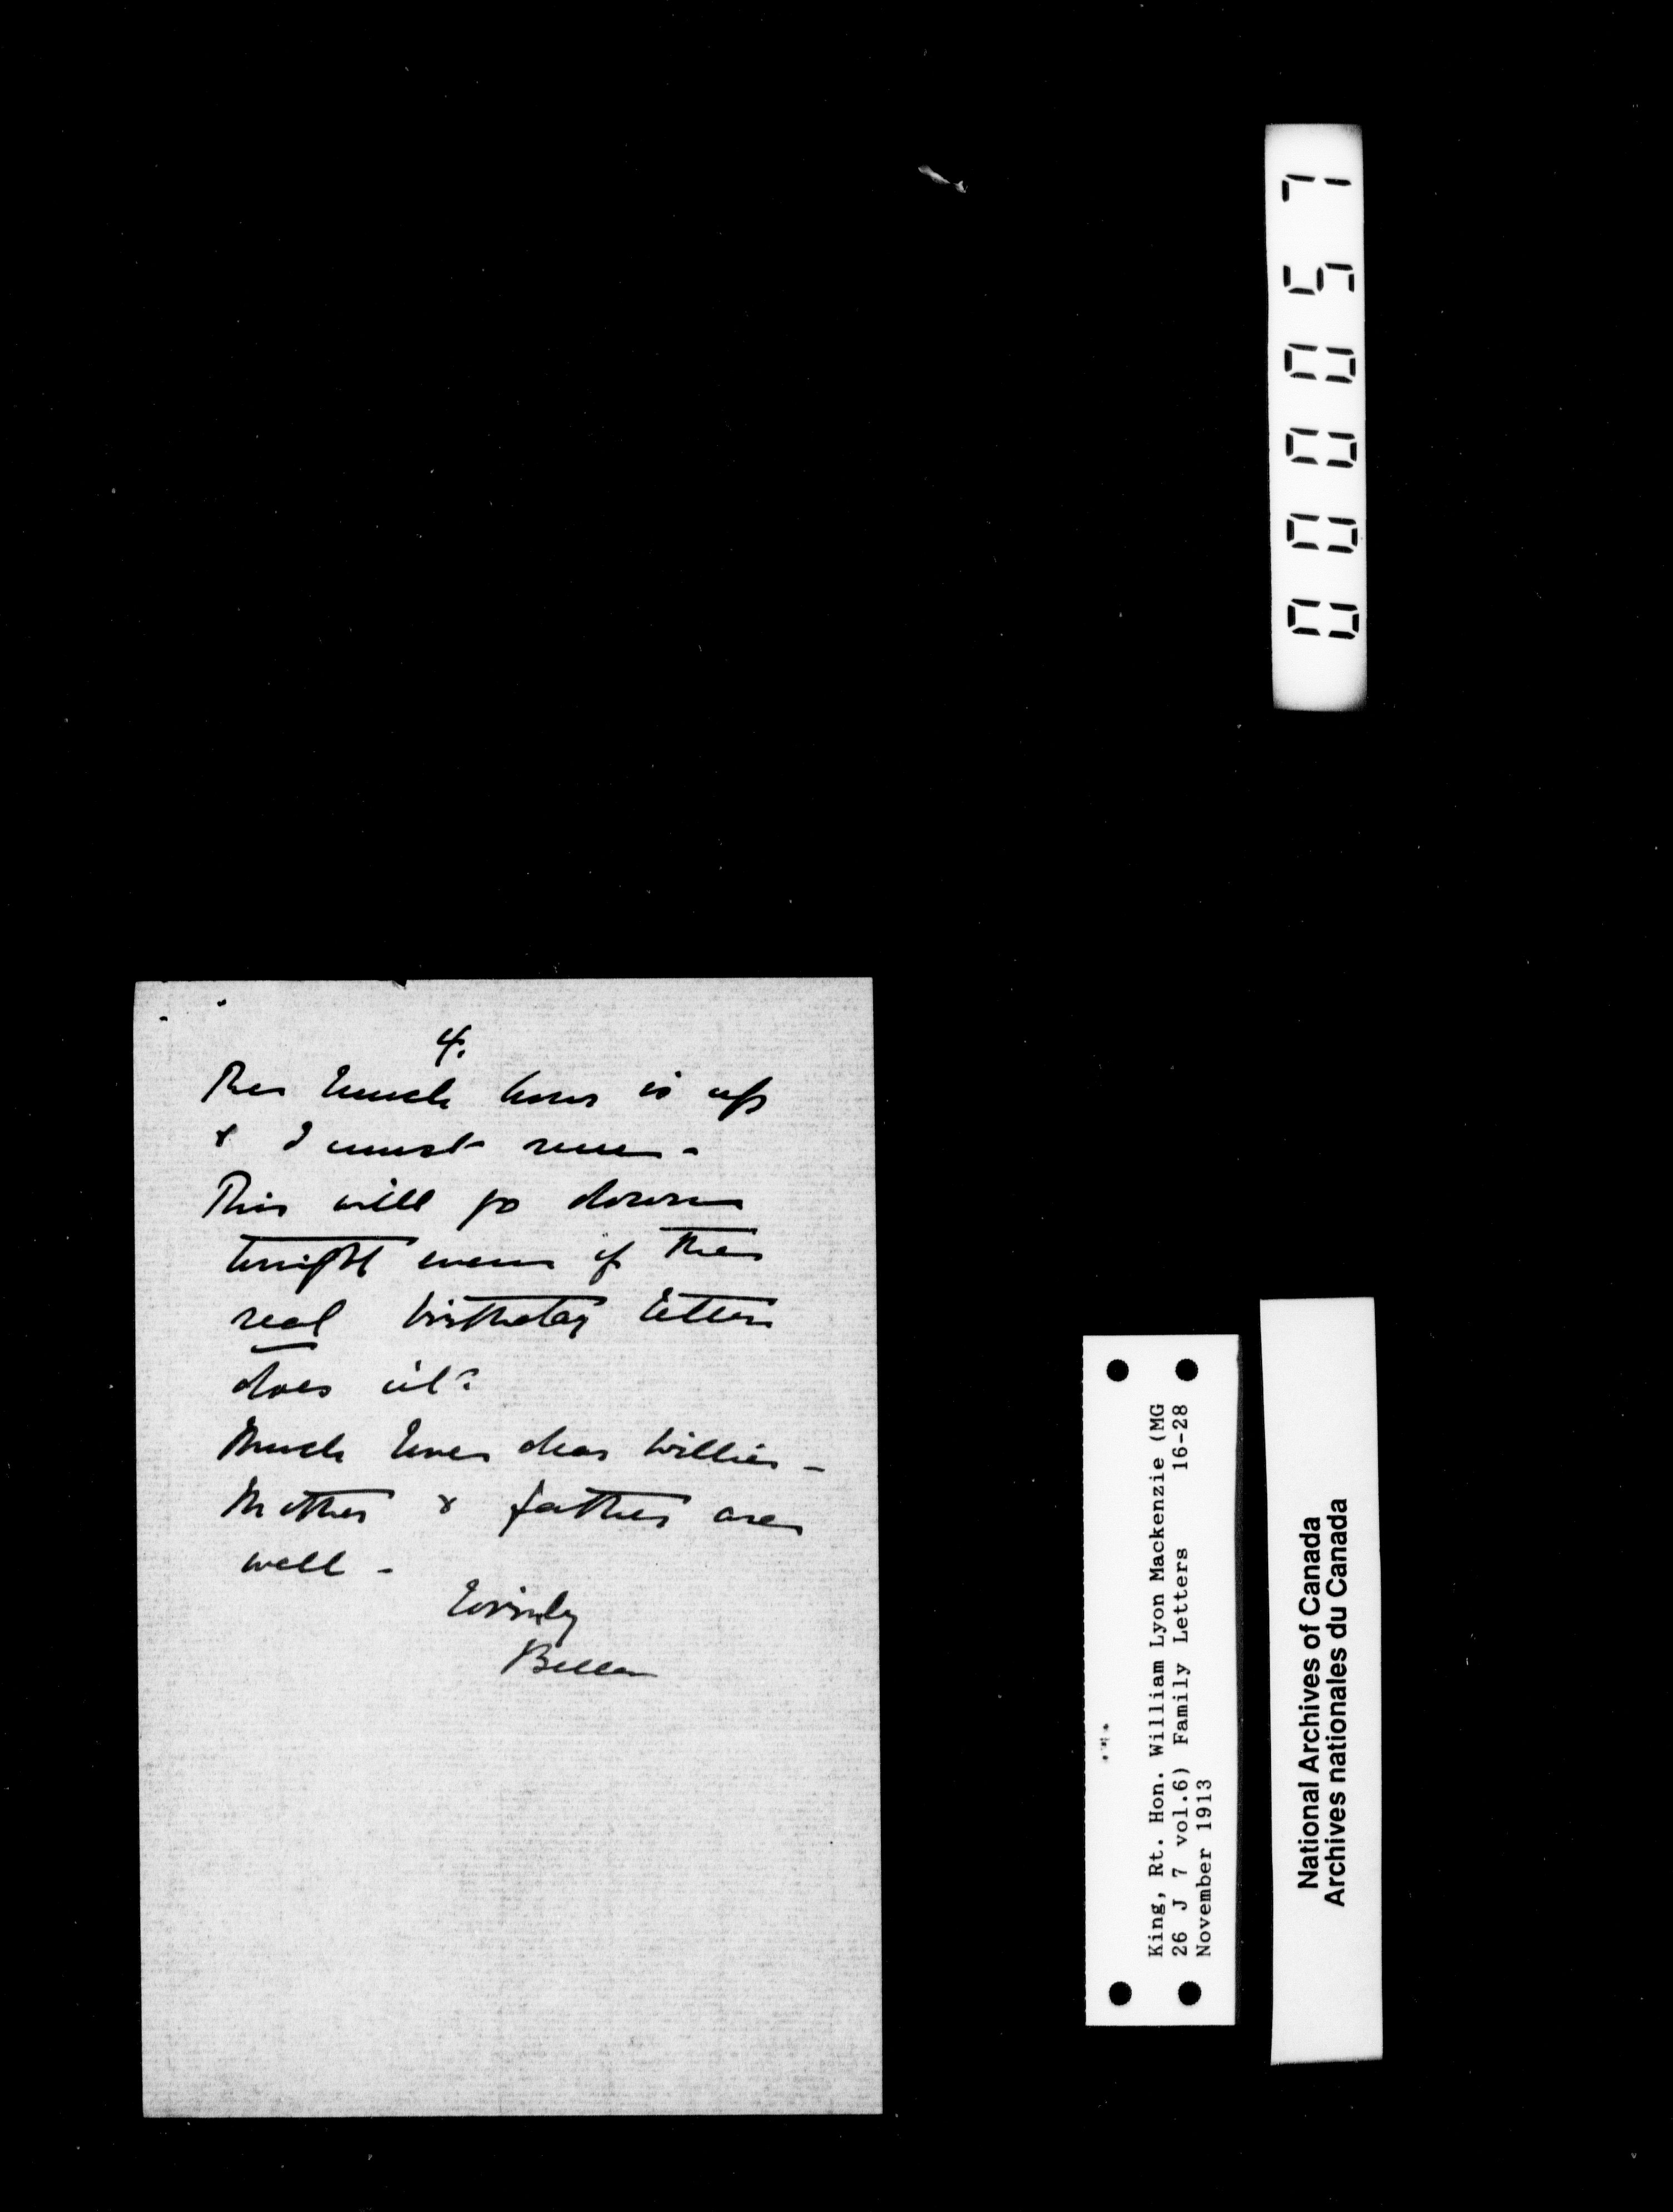 4.
The lunch hour is up
& I must run -
This will go down
tonight even if the
real birthday letter
does it?
Much love dear Willie -
Mother & father are
well -
Lovingly
Bella
000057
King, Rt. Hon. William Lyon Mackenzie (MG
26 J 7 vol.6) Family Letters 16-28
November 1913
National Archives of Canada
Archives nationales du Canada